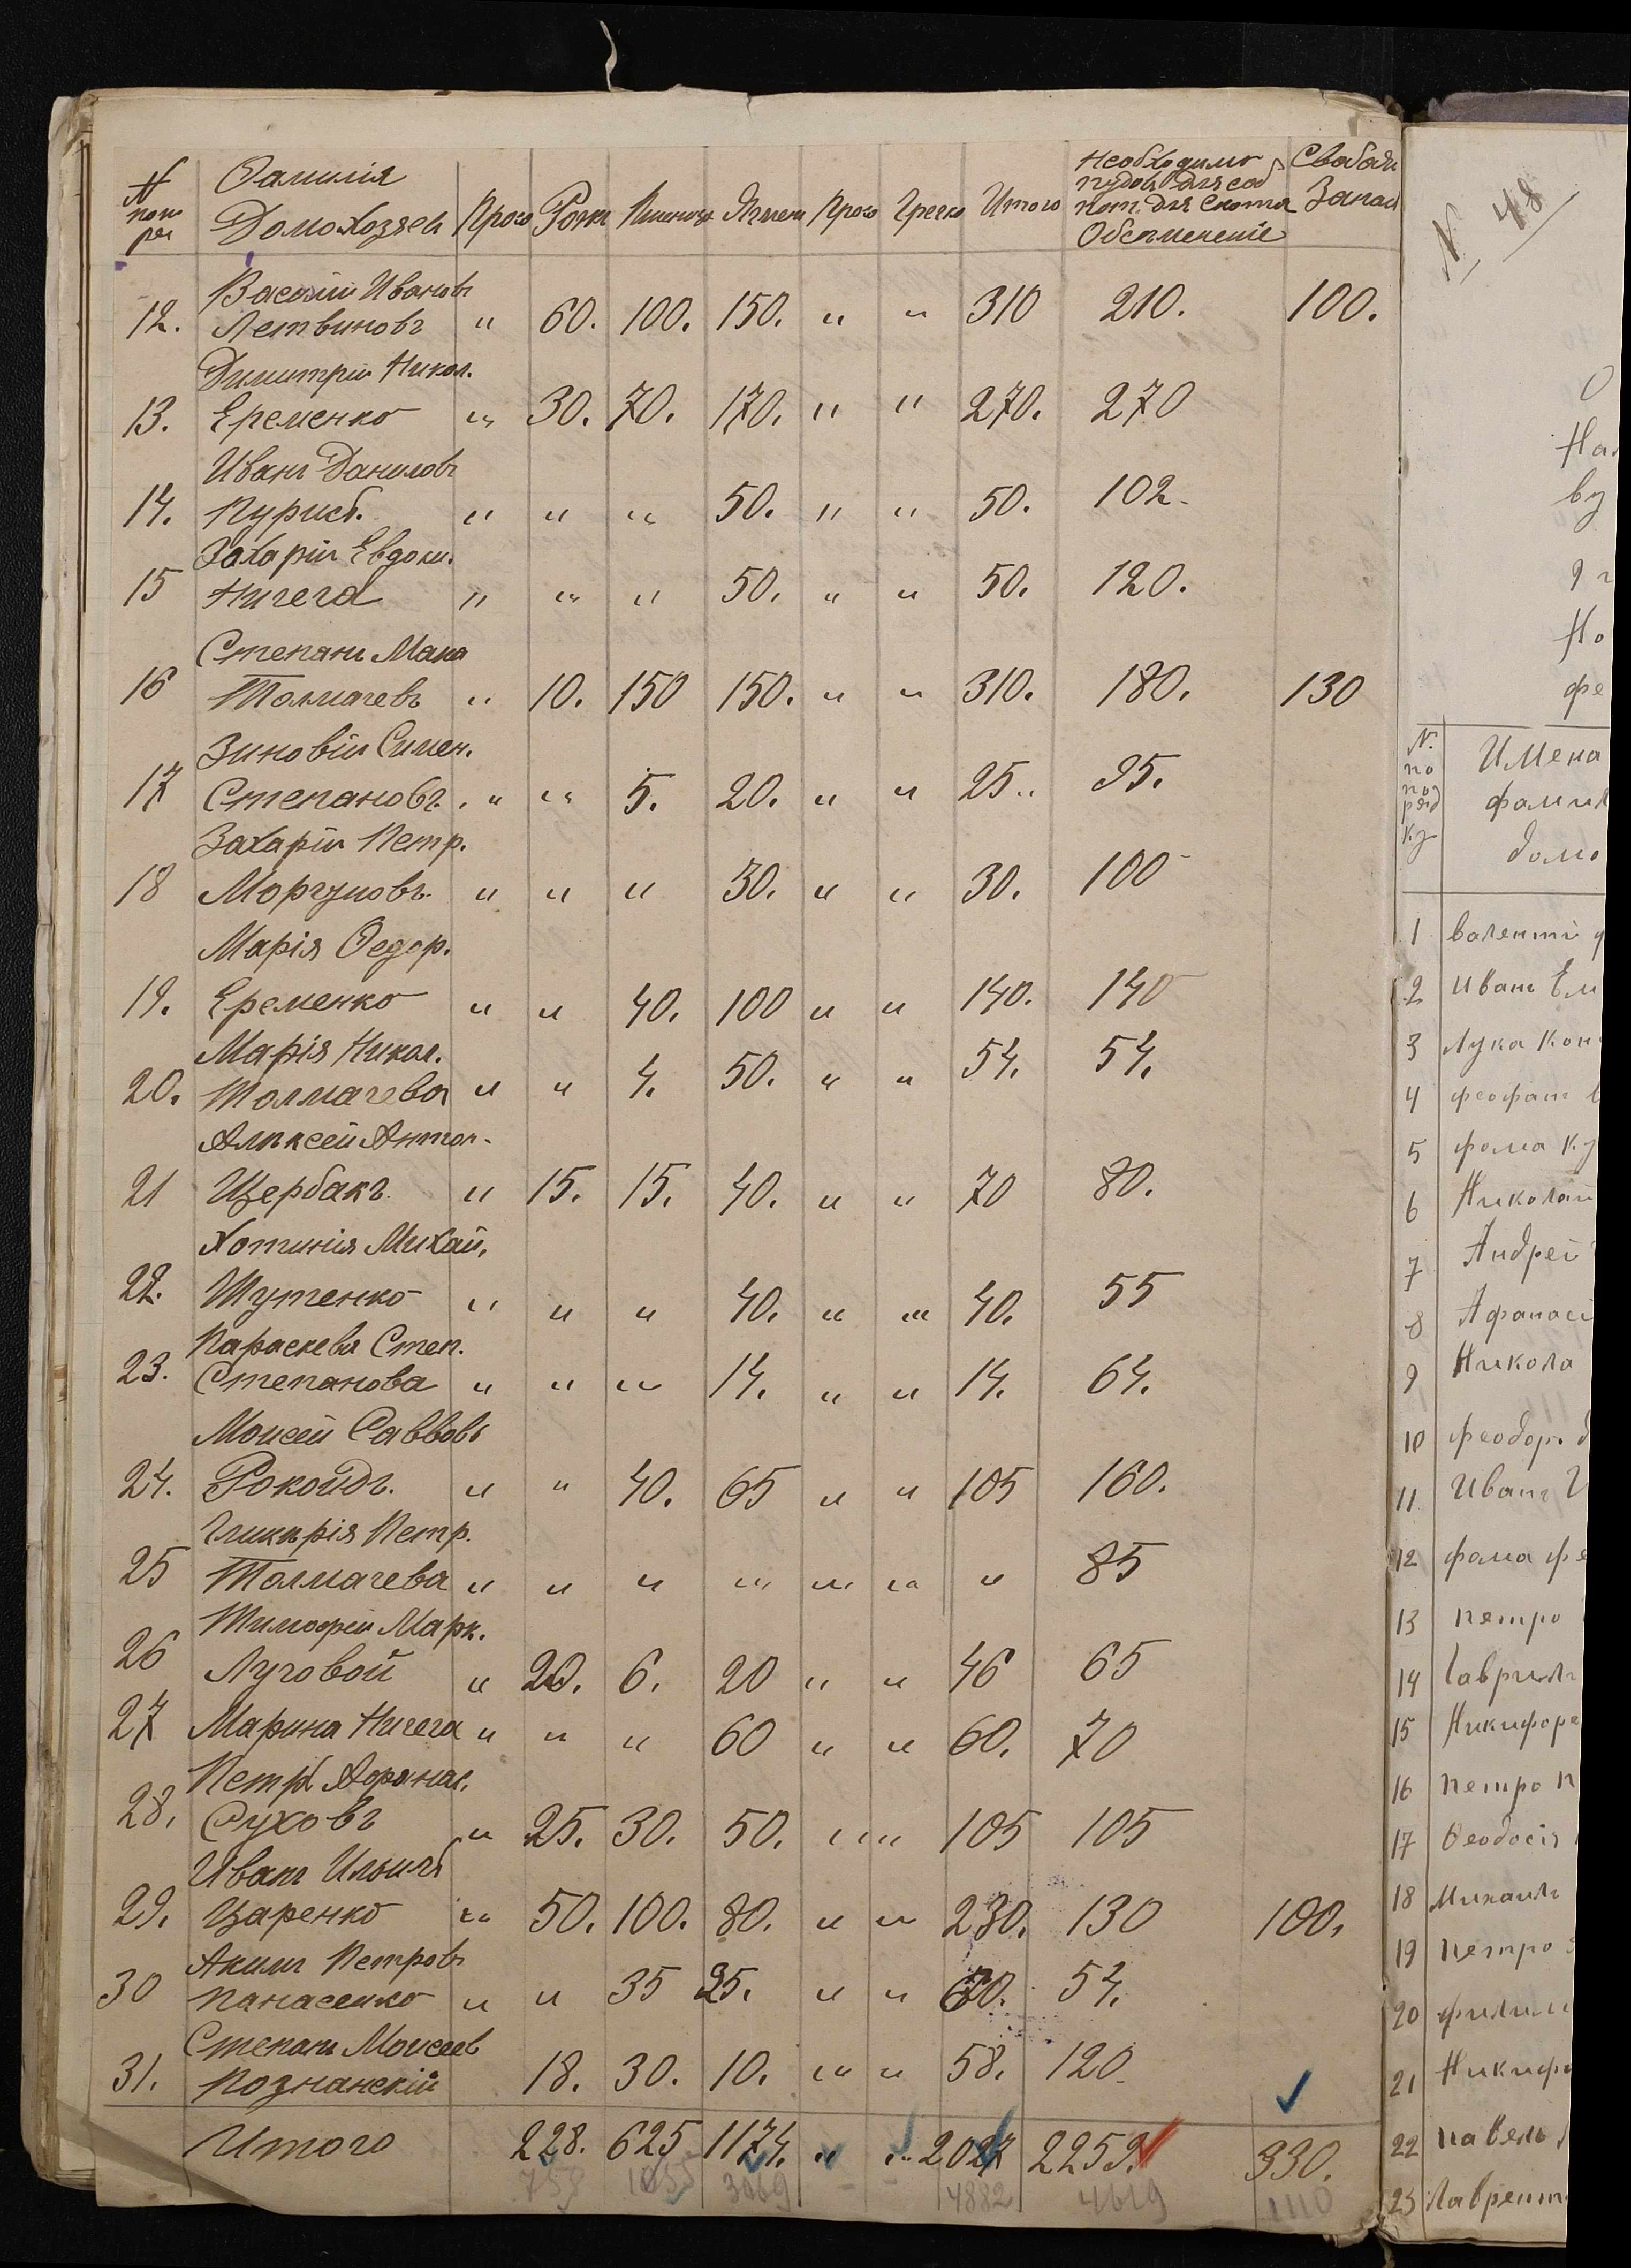 N поп ря | Фамилія Домохозяев | Просо | Рожь | Пшеница | Ячмень | Просо | Гречка | Итого | Необходимо пудов для соб пот. для скота Обсеменение | Свобод Запас
Василій Ивановъ
12. Летвиновъ " 60. 100. 150. " " 310 210. 100.
Димитрій Никол.
13. Еременко " 30. 70. 170. " " 270. 270
Иванъ Даниловъ
14. " " " 50. " " 50. 102.
Захарій Евдоким.
15 Нигега " " " 50. " " 50. 120.
Степанъ Мака
16 Толмачевъ " 10. 150 150. " " 310. 180. 130
Зиновій Симен.
17 Степановъ. " " 5. 20. " " 25. 95.
Захарій Петр.
18 Моргуновъ. " " " 30. " " 30. 100
Марія Ѳедор.
19. Еременко " " 40. 100 " " 140. 140
Марія Никол.
20. Толмачева " " 4. 50. " " 54. 54.
Алексей Антон.
21 Щербакъ. " 15. 15. 40. " " 70 80.
Хотинія Михай.
22. Шутенко " " " 40. " " 40. 55
Параскева Степ.
23. Степанова " " " 14. " " 14. 64.
Моисей Савввовъ
24. Рокойдъ. " " 40. 65 " " 105 160.
Гликирія Петр.
25 Толмачева " " " " " " " 85
Тимофей Марк.
26 Луговой " 20. 6. 20 " " 46 65
27 Марина Нигега " " " 60 " " 60. 70
Петр Афанас.
28. Суховъ " 25. 30. 50. " " 105 105
Иванъ Ильичъ
29. Царенко " 50. 100. 80. " " 230. 130 100.
Акимъ Петровъ
30 Панасенко " " 35 25. " " 60. 54.
Степанъ Моисеев
31. Познанскій 18. 30. 10. " " 58. 120
Итого 228. 625 1174. " " 2027 2259. 330.
758 1055 3069 - - 4882 4619 1110
N. 48
О
На
ву
Но
фе
N. по поряд ку
Имена
фамил
домо
1 валенти ф
2 Иванъ Ем
3 Лука Кон
4 феофан
5 фома Ку
6 Николай
7 Андрей
8 Афанасі
9 Никола
10 феодор. д
11 Иванъ
12 фома фе
13 петро
14 Гаврилъ
15 Никифора
16 петро п
17 Феодосія
18 Михаилъ
19 петро
20 филип
21 Никифо
22 павель
23 Лаврент